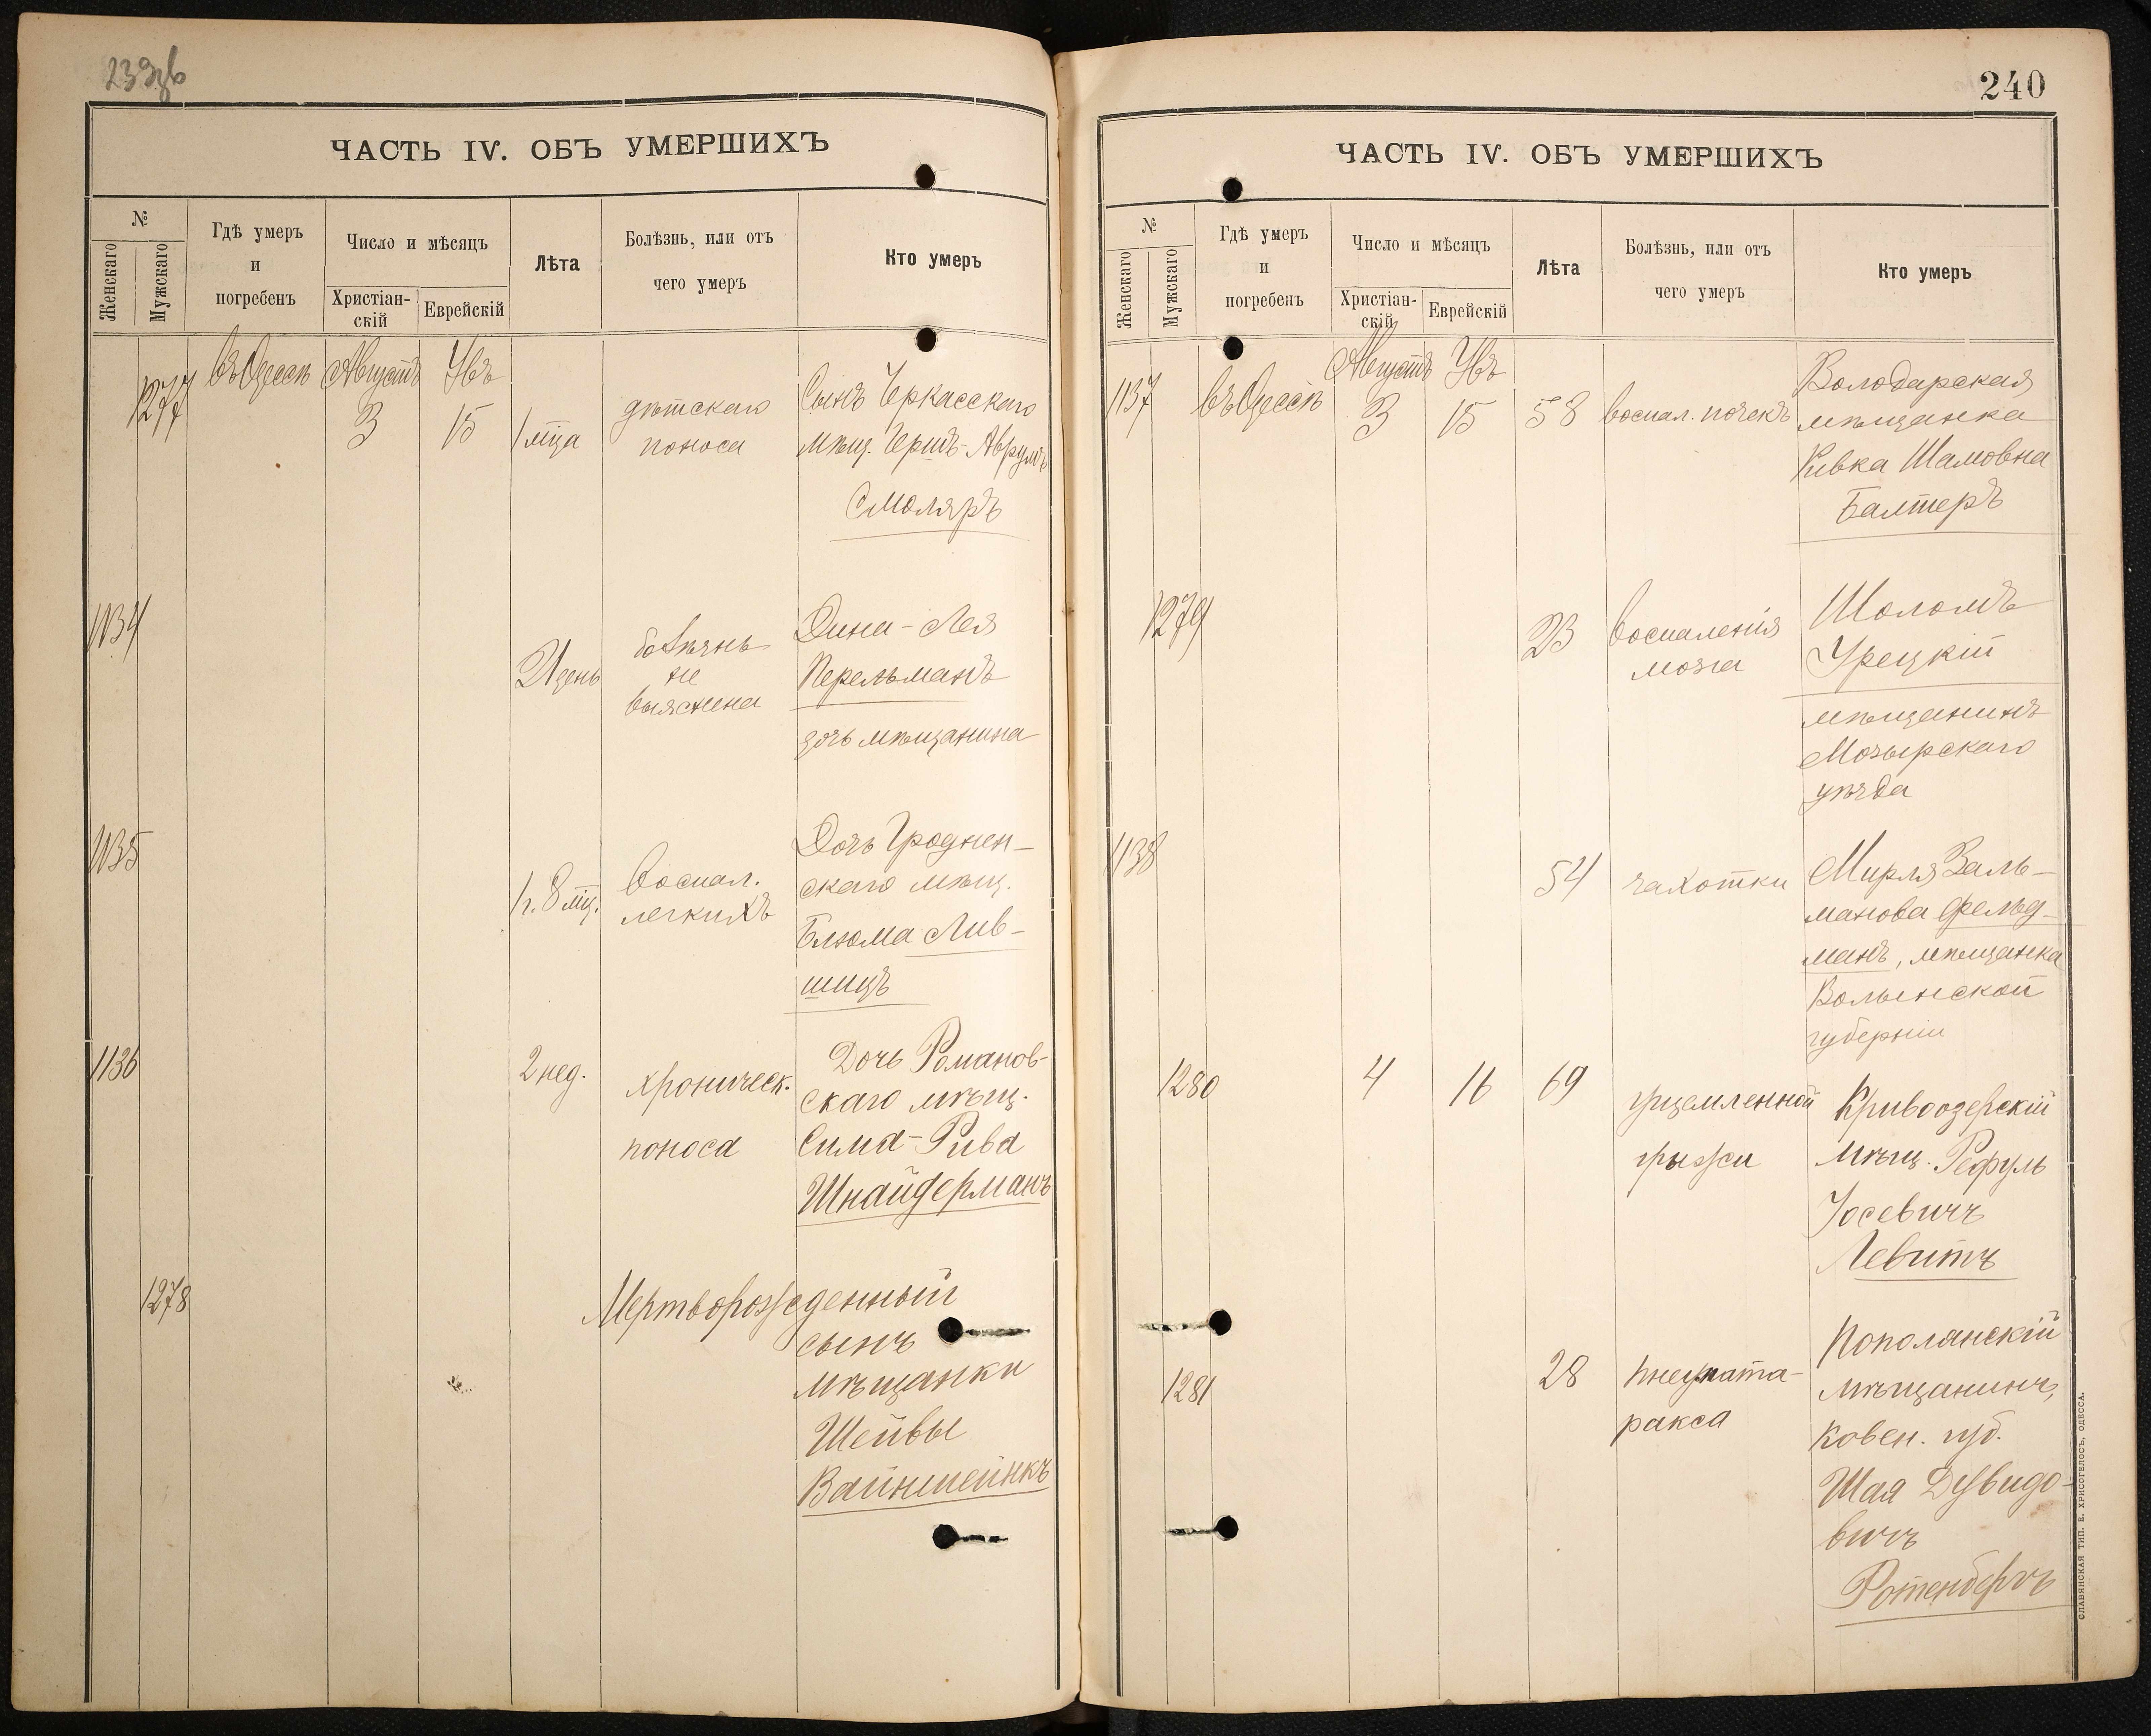 ЧАСТЬ IV. ОБЪ УМЕРШИХЪ
№
Женскаго
Мужскаго
Гдѣ умеръ
и
погребенъ
Число и мѣсяцъ
Христіан-
скій
Еврейскій
Лѣта
Болѣзнь, или отъ
чего умеръ
Кто умеръ
1277
въ Одессѣ
Августъ
3
Увъ
15
1 мѣца
дѣтскаго
поноса
Сынъ Черкасскаго
мѣщ. Гершъ-Аврумъ
Смоляръ
1134
21 день
болѣзнь
не
выяснена
Дина-Лея
Перельманъ
дочь мѣщанина
1135
1 г. 8 мц.
воспал.
легкихъ
Дочь Гроднен-
скаго мѣщ.
Блюма Лив-
шицъ
1136
2 нед.
хроническ.
поноса
Дочь Романов-
скаго мѣщ.
Сима-Рива
Шнайдерманъ
1278
Мертворожденный
сынъ
мѣщанки
Шейвы
240
ЧАСТЬ IV. ОБЪ УМЕРШИХЪ
№
Женскаго
Мужскаго
Гдѣ умеръ
и
погребенъ
Число и мѣсяцъ
Христіан-
скій
Еврейскій
Лѣта
Болѣзнь, или отъ
чего умеръ
Кто умеръ
1137
въ Одессѣ
Августъ
3
Увъ
15
58
воспал. почекъ
Володарская
мѣщанка
Ривка Шамовна
Балтеръ
1279
23
воспаленія
мозга
Шоломъ
Урецкій
мѣщанинъ
Мозырскаго
уѣзда
1138
54
чахотки
Мирля Заль-
манова Фельд-
манъ, мѣщанка
Волынской
губерніи
1280
4
16
69
ущемленной
грыжи
Кривоозерскій
мѣщ. Рефуль
Іосевичъ
Левитъ
1281
28
пнеумата-
ракса
Пополянскій
мѣщанинъ,
Ковен. губ.
Шая Дувидо-
вичъ
Ротенбергъ
СЛАВЯНСКАЯ ТИП. Е. ХРИСОГЕЛОСЪ, ОДЕССА.